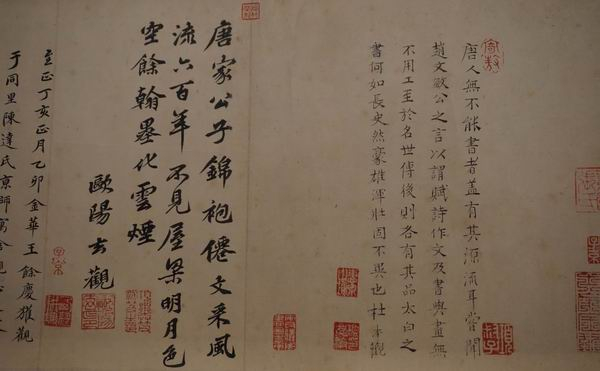 唐人無不能書者蓋有其源流耳嘗聞
趙文敏公之言以謂賦詩作文及書與畫無
不用工至於名世傳後則各有其品太白之
書何如長史然豪雄渾壯固不異也杜本觀
唐家公子錦袍僊文采風
流六百年不見屋梁明月色
空餘翰墨化雲煙
歐陽玄觀
至正丁亥正月乙卯金華王餘慶獲觀
于同里陳達氏京師寓舍